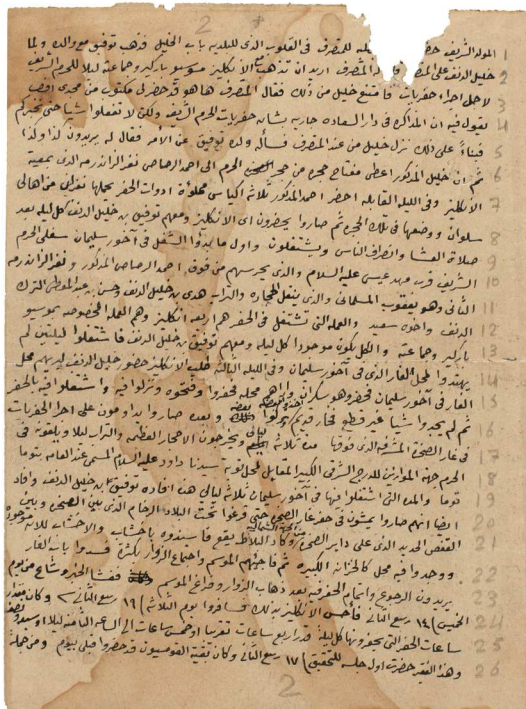 2
1 المولد الشريف للمتصرف في القلوب الذي للبلديه بباب الخليل فذهب توفيق مع والده ولما
2 خليل الدنف على المتصرف اريد ان تذهب مع الانكليز موسيو باركير وجماعته ليلا للحرم الشريف
3 لاجل اجراء حفريات فامتنع خليل من ذلك فقال المتصرف ها هو قد حضر لي مكتوب من مجري افندي
4 يقول فيه ان المذاكره في دار السعاده جاريه بشان حفريات الحرم الشريف ولكن لا تفعلوا شيا حتى نخبركم
5 فبناءً على ذلك نزل خليل من عند المتصرف فسأله ولده توفيق عن الأمر فقال له يريدون كذا وكذا
6 ثم ان خليل المذكور اعطى مفتاح حجره من حجر الحرم الى احمد الرصاصي نفر الزاندرمه الذي بمعية
7 الانكليز وفي الليله القابله احضر احمد المذكور ثلاثة اكياس مملوأة ادوات الحفر يحملها نفران من اهالي
8 سلوان ووضعها في تلك الحجره ثم صاروا يحضرون اي الانكليز ومعهم توفيق بن خليل الدنف كل ليله بعد
9 صلاة العشا وانصراف الناس ويشتغلون واول ما بدؤا الشغل في آخور سليمان سفلي الحرم
10 الشريف قرب مهد عيسى عليه السلام والذي يحرسهم من فوق احمد الرصاصي المذكور ونفر الزاندرمه
11 الثاني وهو يعقوب المسلماني والذي ينقل الحجاره والتراب هدى بن خليل الدنف وحسن عبد المعطي الترك
12 الدنف واخوه سعيد والعمله التي تشتغل في الحفر هم اربعه انكليز وهم العمله المخصوصه بموسيو
13 باركير وجماعته والكل يكون موجودا كل ليله ومعهم توفيق بن خليل الدنف فاشتغلوا ليلتين لم
14 يهتدوا لمحل الغار الذي في آخور سليمان وفي الليله الثالثه طلب الانكليز حضور خليل الدنف ليريهم محل
15 الغار في آخور سليمان فحضر وهو سكران واراهم محله فحفروا وفتحوه ونزلوا فيه واشتغلوا فيه بالحفر
16 ثم لم يجدوا شيا غير قطع فخار قديم وبعده صاروا يداومون على اجرا الحفريات
17 في غار الصخرة المشرفه الذي فوقها مدة ثلاثة ليالي ويخرجون الاحجار العظيمه والتراب ليلا ويلقونه في
18 الحرم جهة الموازين للدرج الشرقي الكبير المقابل لمحل توبة سيدنا داود عليه السلام المسمى عند العامه بتوما
19 توما والمده التي اشتغلوا فيها في آخور سليمان ثلاثة ليالي هذه افادة توفيق بن خليل الدنف وافاد
20 ايضا انهم صاروا يمشون في حفر غار الصخره حتى فرغوا تحت البلاط الرخام الذي بين الصخره وبين
21 القفص الحديد الذي على داير الصخره من الجهة الشماليه وكاد البلاط يقع فاسندوه باخشاب والاخشاب للان موجوده
22 ووجدوا فيه محل كالخزانه الكبيره ثم فاجئهم الموسم واجتماع الزوار بكثره فسدوا باب الغار
23 يريدون الرجوع واتمام الحفر فيه بعد ذهاب الزوار وفراغ الموسم ففشا الخبر وشاع من يوم
24 الخميس ١٤ ربيع الثاني فأحس الانكليز بذلك فسافروا يوم الثلاثه ١٩ ربيع الثاني وكان مقدار
25 ساعات الحفر التي يحفرونها كل ليله قدر اربع ساعات تقريبا او خمس ساعات الى الساعه الثامنه ليلا او سبعه ونصف
26 وهذا الفقير حضرت اول جلسه للتحقيق ١٧ ربيع الثاني وكان بقية القومسيون قد حضروا قبلي بيوم ومن جملة
2